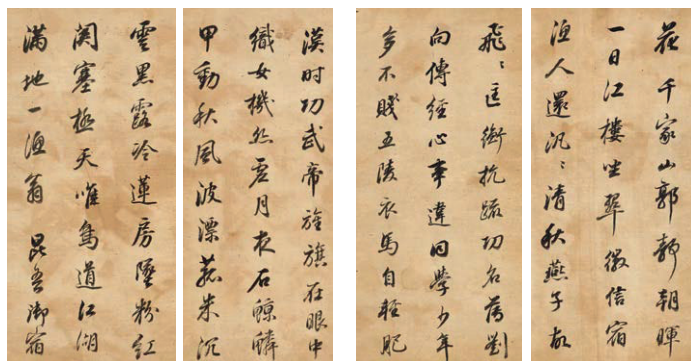 花千家山郭靜朝暉
一日江樓坐翠微信宿
漁人還汎〻清秋燕子故
飛〻匡衡抗疏功名薄劉
向傳經心事違同學少年
多不賤五陵衣馬自輕肥
漢時功武帝旌旗在眼中
織女機絲虛月夜石鯨鱗
甲動秋風波漂菰米沉
雲黑露冷蓮房墜粉紅
關塞極天唯鳥道江湖
滿地一漁翁 昆吾御宿